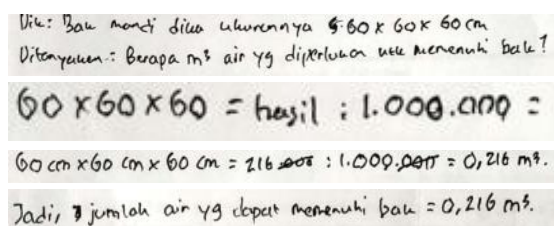 Dik: Bak mandi diisi ukurannya 60 x 60 x 60 cm
Ditanyakan: Berapa m³ air yg diperlukan utk memenuhi bak?
60 x 60 x 60 = hasil : 1.000.000 =
60 cm x 60 cm x 60 cm = 216.000 : 1.000.000 = 0,216 m³.
Jadi, jumlah air yg dapat memenuhi bak = 0,216 m³.